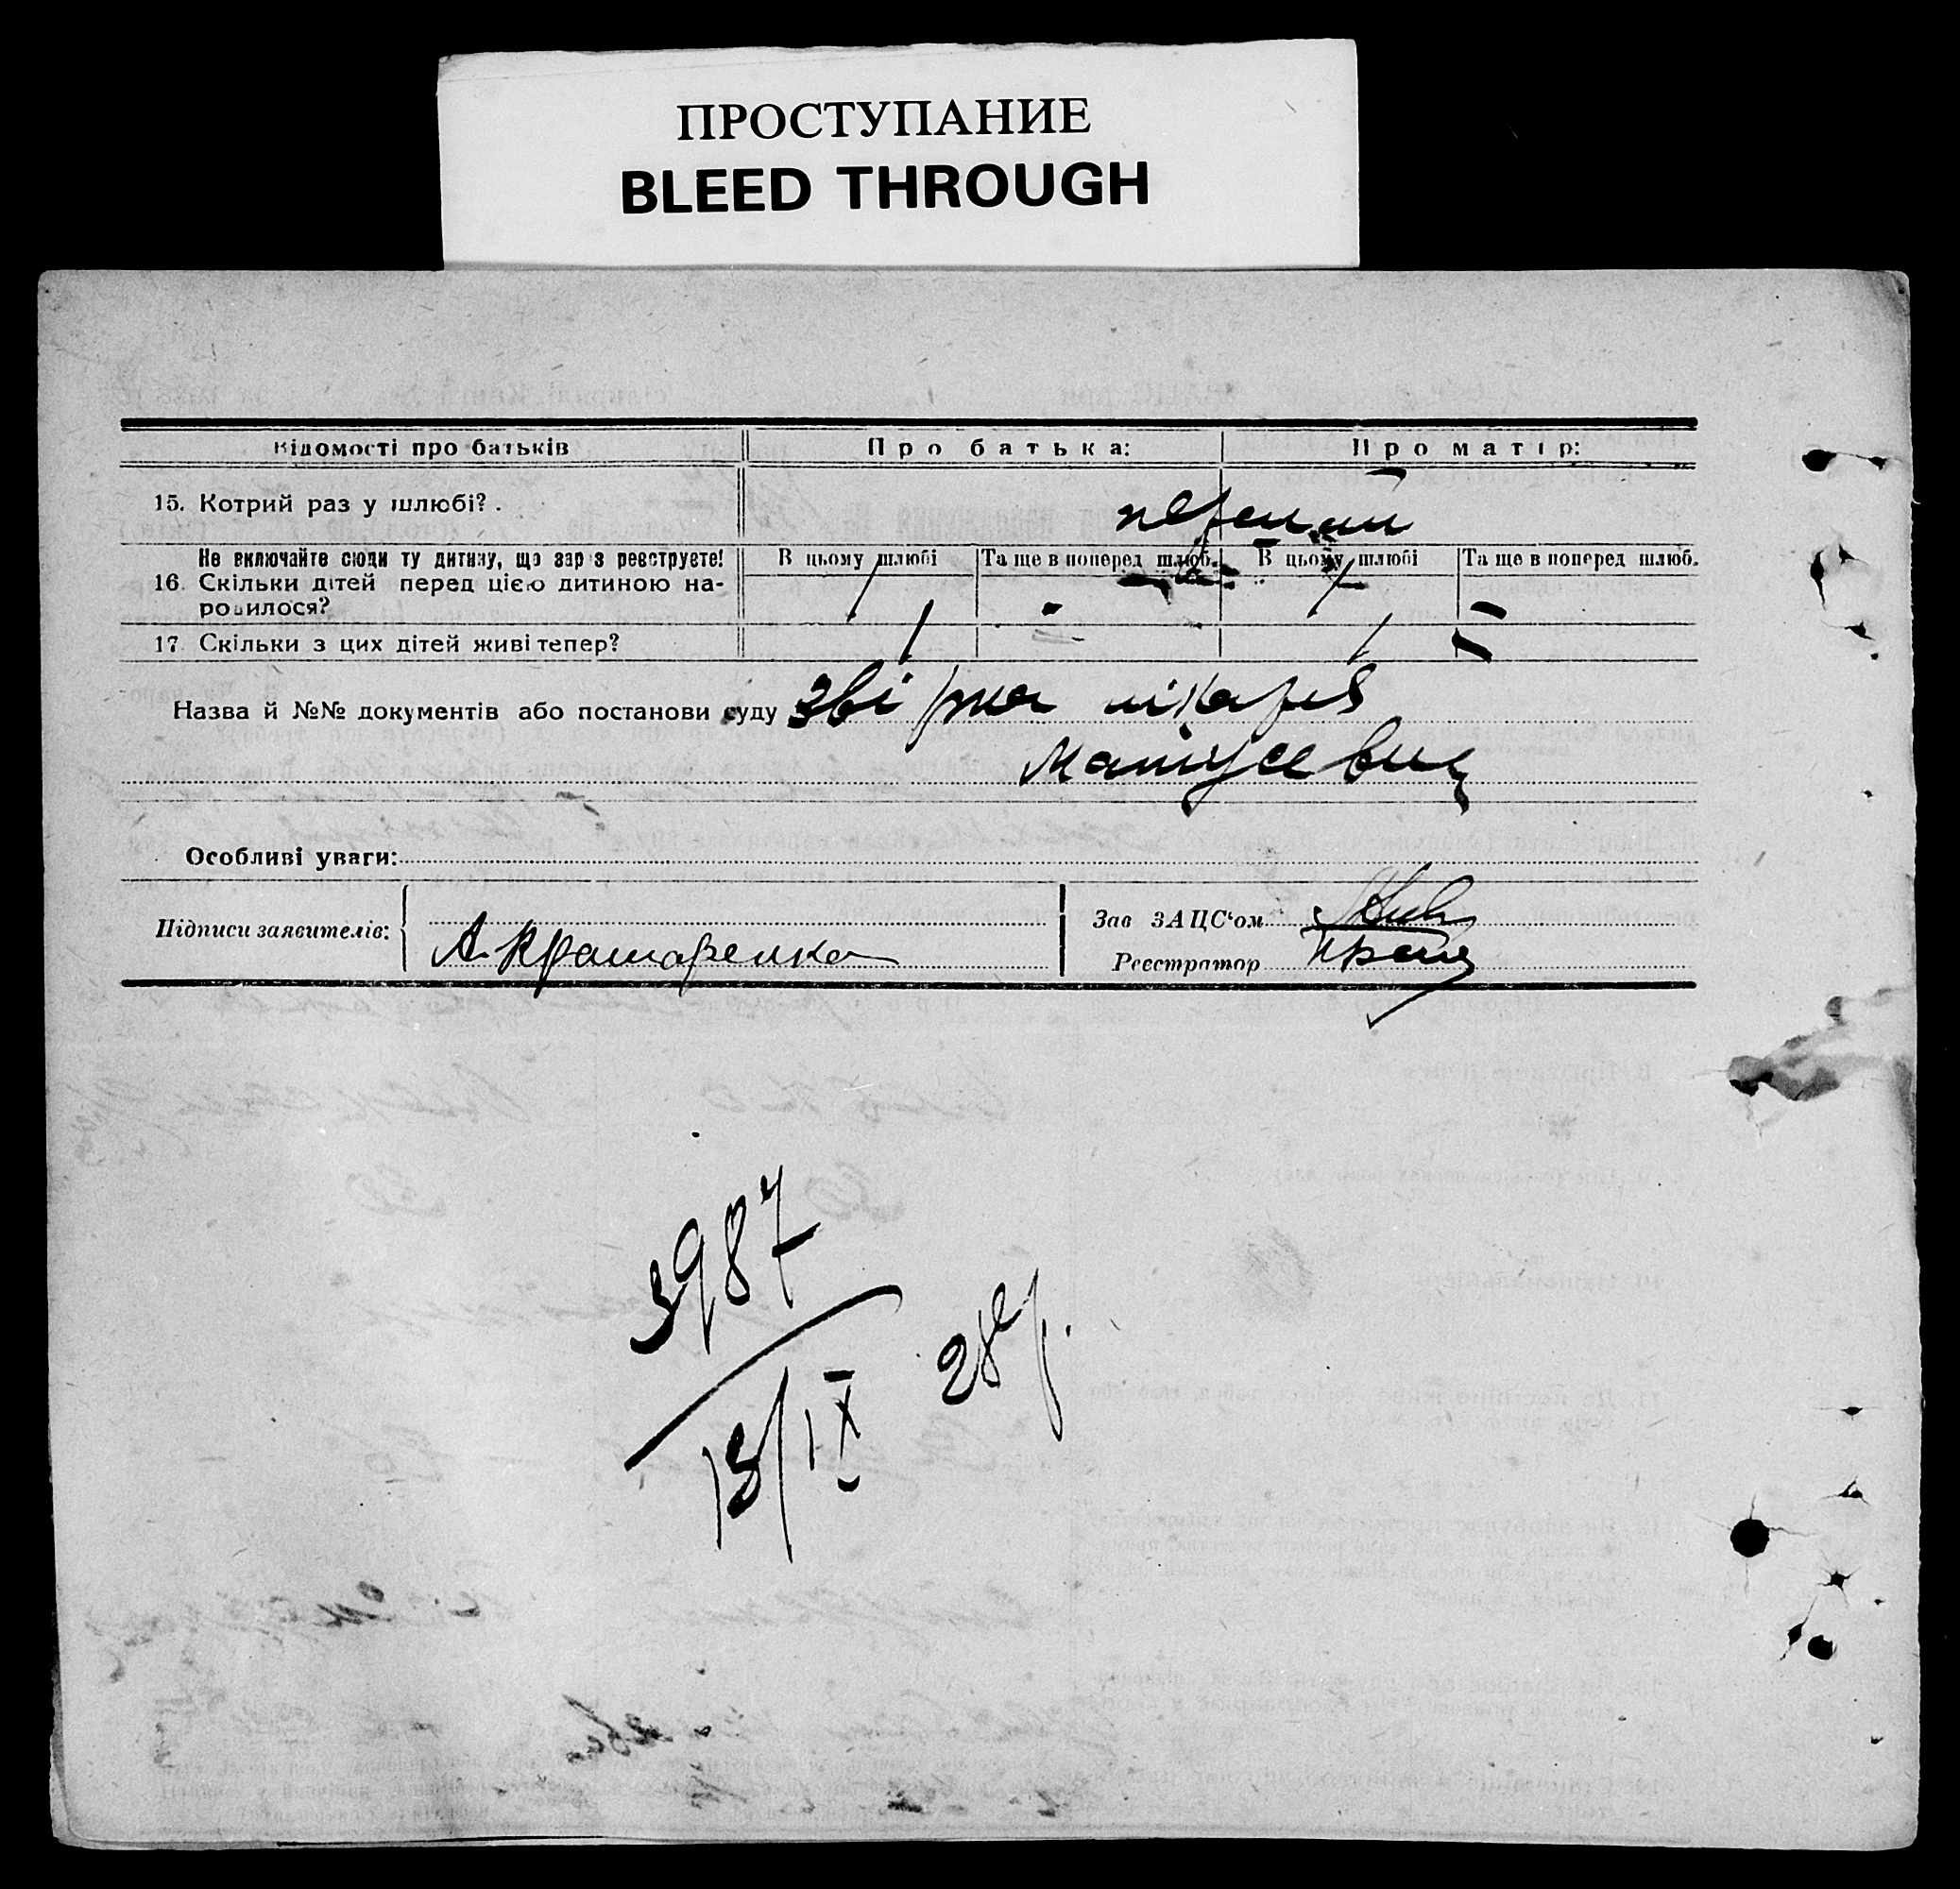 ПРОСТУПАНИЕ
BLEED THROUGH
Відомості про батьків
Про батька:
Про матір:
15. Котрий раз у шлюбі?
перший
Не включайте сюди ту дитину, що зараз реєструєте!
В цьому шлюбі
Та ще в поперед шлюб.
В цьому шлюбі
Та ще в поперед шлюб.
16. Скільки дітей перед цією дитиною на-
родилося?
1 - 1 -
17 Скільки з цих дітей живі тепер?
1 - 1 -
Назва й №№ документів або постанови суду лікаря
Матусевич
Особливі уваги:
Підписи заявителів:
А. Крамаренко
Зав ЗАЦС‘ом
Реєстратор
3987
18/IX 28 р.